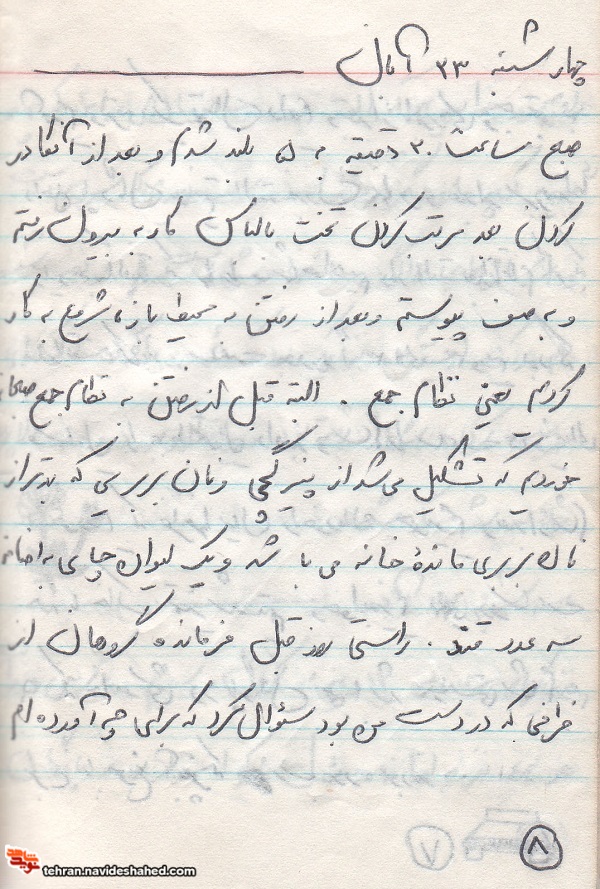 چهار شنبه ۲۳ آبان
صبح ساعت ۳۰ دقیقه به ۵ بلند شدم و بعد از آنکادر
کردن بعد مرتب کردن تخت با لباس کار به بیرون رفتم
و به صف پیوستم و بعد از رفتن به محیط باز، شروع به کار
کردیم یعنی نظام جمع . البته قبل از رفتن به نظام جمع صبحانه
خوردیم که تشکیل می شد از پنیر گچی و نان بربریی که بدتر از
نان بربری مانده خانه می با شد و یک لیوان چای به اضافه
سه عدد قند . راستی روز قبل فرمانده گروهان از
ظرفی که در دست من بود سئوال کرد که برای چه آورده ام
۸
۷
نوید شاهد
tehran.navideshahed.com